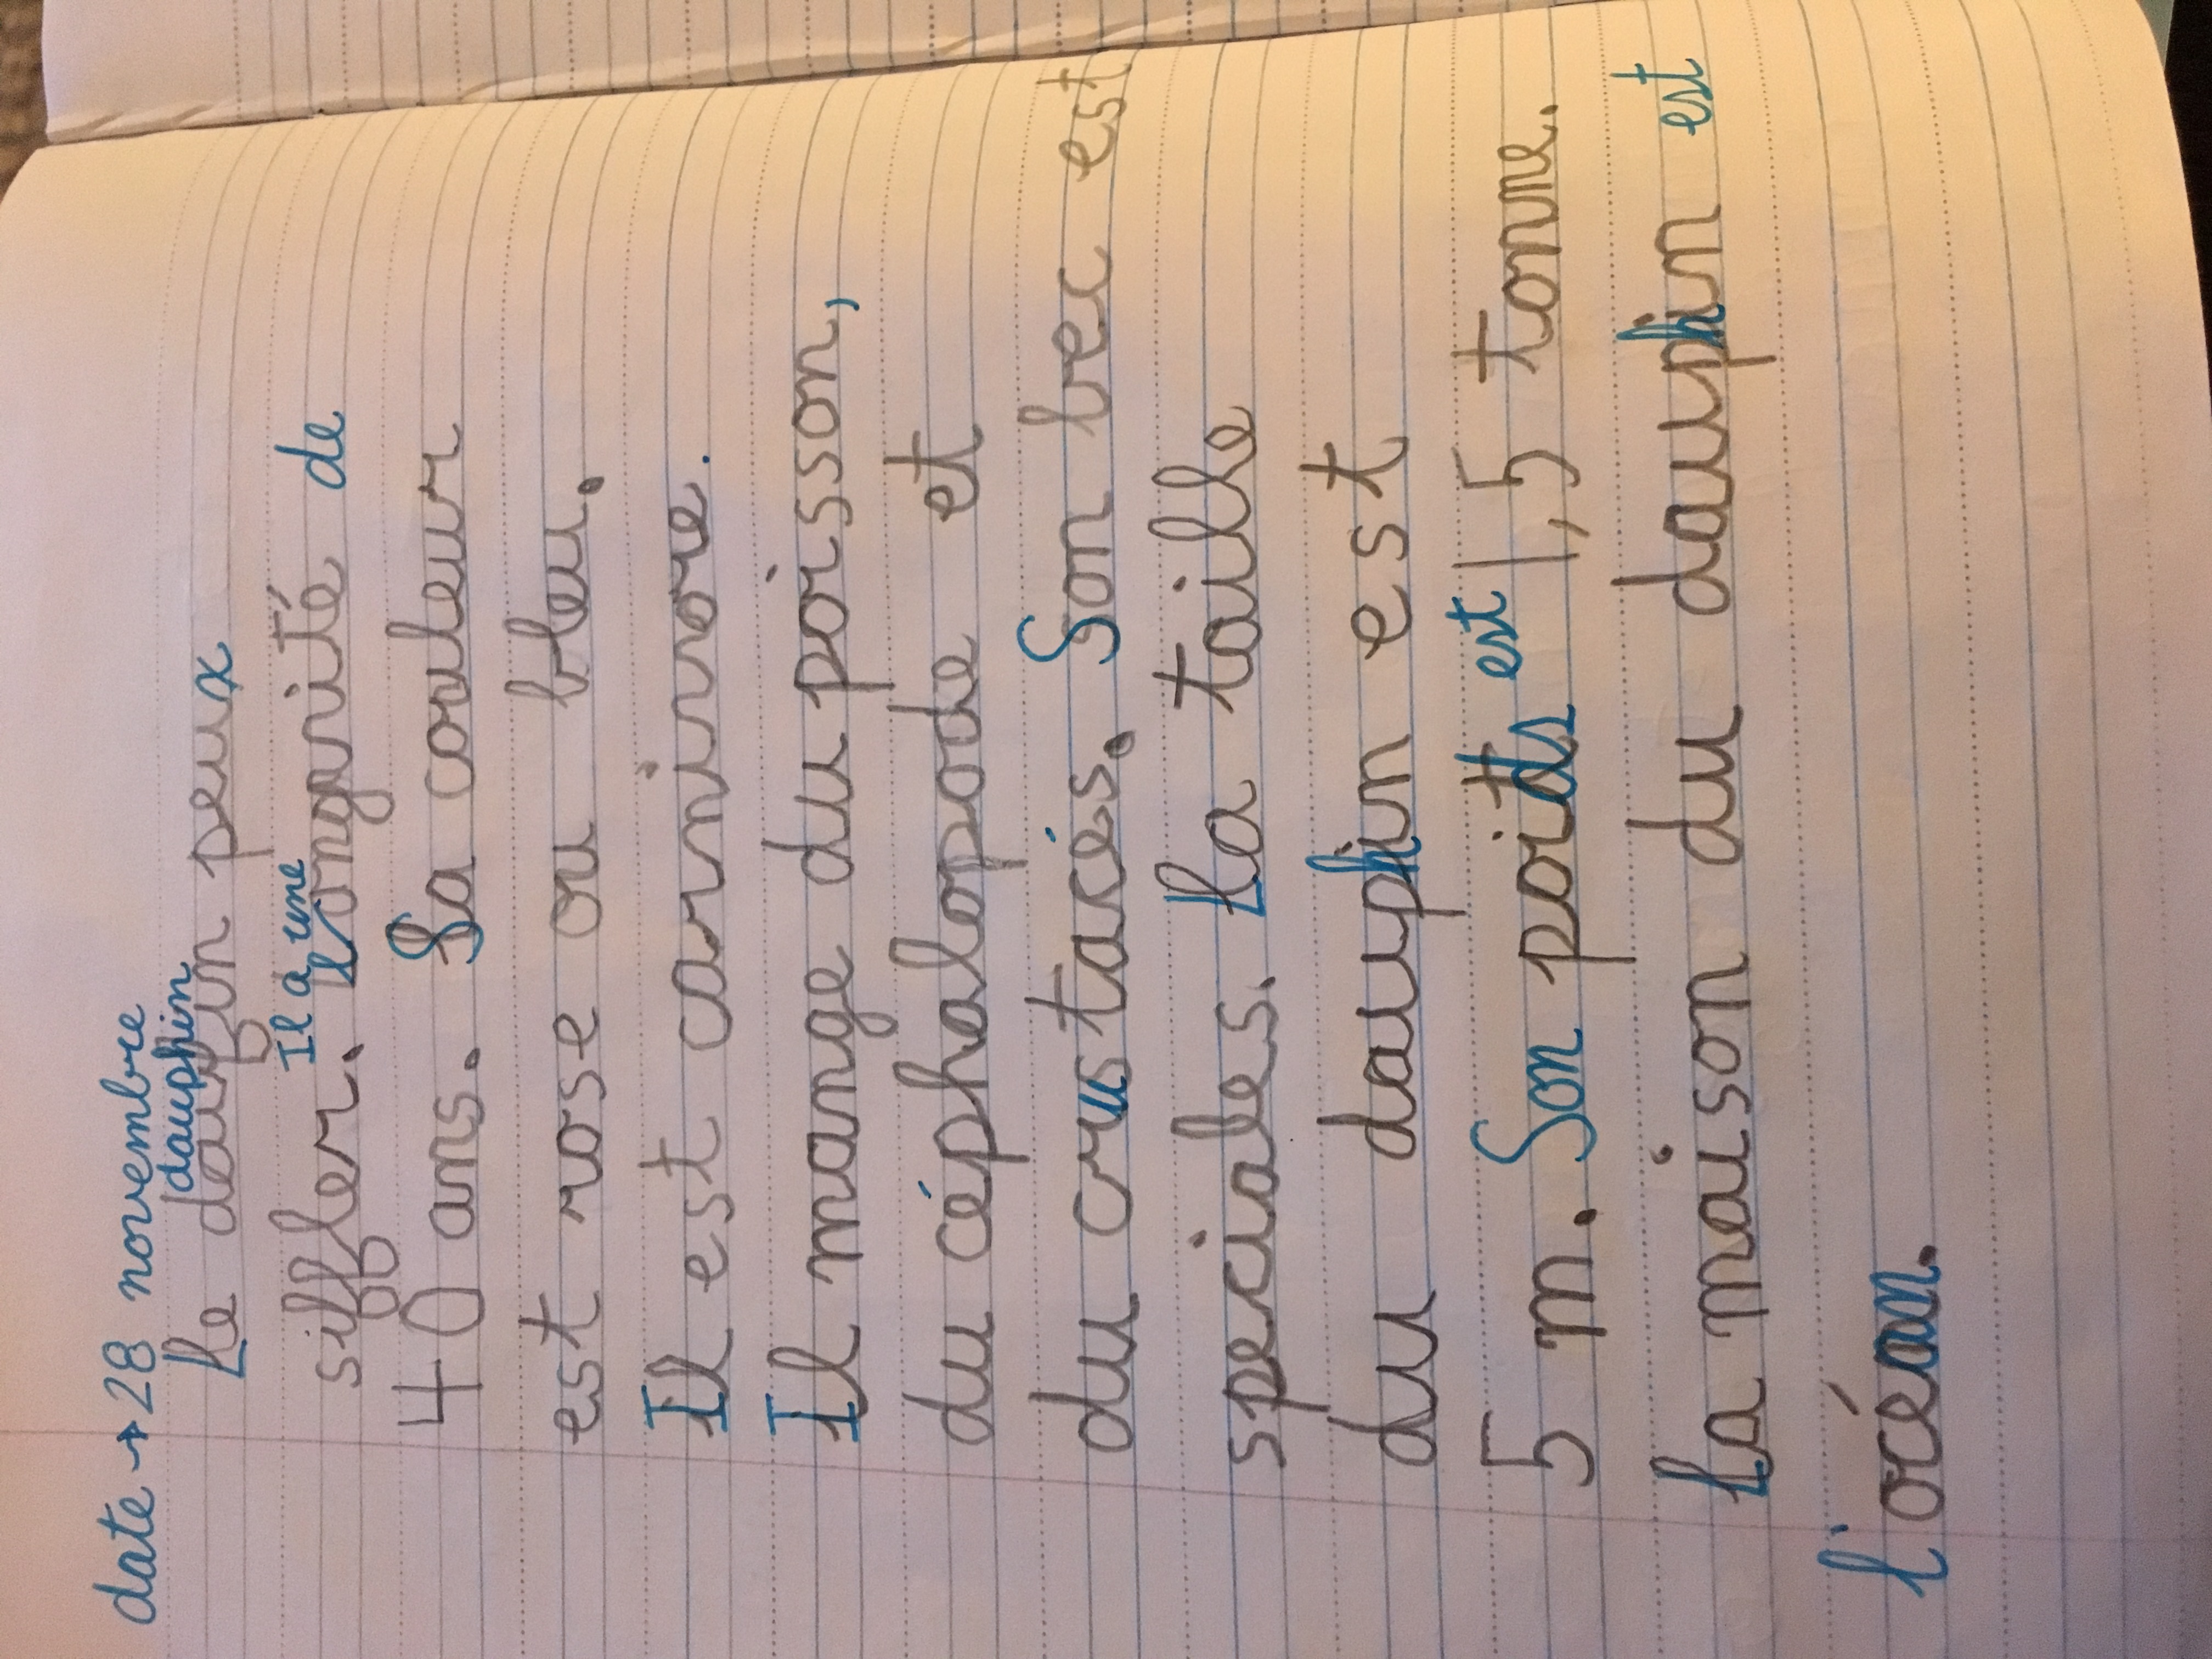 date → 28 novembre
dauphin
Le daufin peux
Il a une
siffler. longarité de
40 ans. Sa couleur
est rose ou bleu.
Il est carnivore.
Il mange du poisson,
du céphalopode et
du crustacés. Son bec est
speciales. La taille
du dauphin est
5 m. Son poids est 1,5 tonne.
La maison du dauphin est
l'océan.